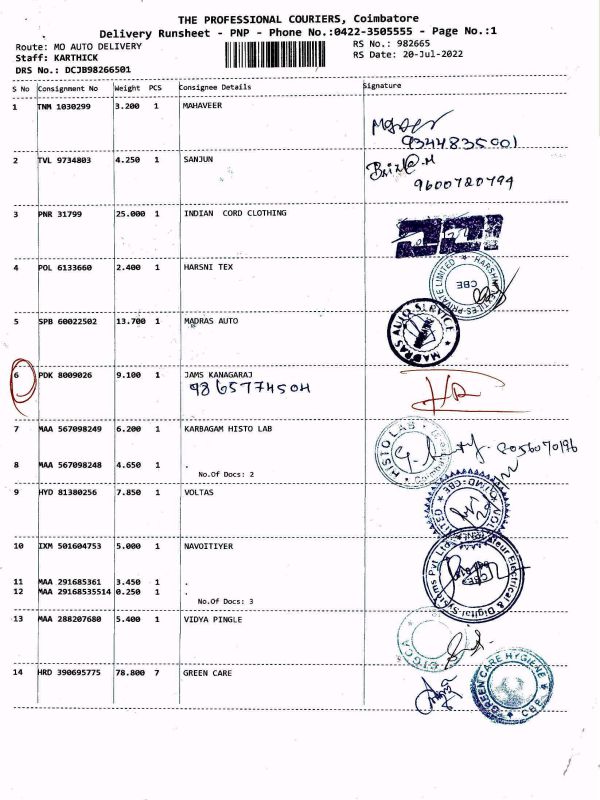 THE PROFESSIONAL COURIERS, Coimbatore
Delivery Runsheet - PNP - Phone No.:0422-3505555 - Page No.:1
Route: MO AUTO DELIVERY RS No.: 982665
Staff: KARTHICK RS Date: 20-Jul-2022
DRS No.: DCJB98266501
S No Consignment No Weight PCS Consignee Details Signature
1 TNM 1030299 3.200 1 MAHAVEER
9344835001
2 TVL 9734803 4.250 1 SANJUN
9600780794
3 PNR 31799 25.000 1 INDIAN CORD CLOTHING
4 POL 6133660 2.400 1 HARSNI TEX
CBE
5 SPB 60022502 13.700 1 MADRAS AUTO
MADRAS AUTO SERVICE
6 PDK 8009026 9.100 1 JAMS KANAGARAJ
9865774504
7 MAA 567098249 6.200 1 KARBAGAM HISTO LAB
HISTO LAB
8056070196
8 MAA 567098248 4.650 1 .
No.Of Docs: 2
9 HYD 81380256 7.850 1 VOLTAS
10 IXM 501604753 5.000 1 NAVOITIYER
Electrical & Digital Systems Pvt. Ltd.
11 MAA 291685361 3.450 1 .
12 MAA 29168535514 0.250 1 .
No.Of Docs: 3
13 MAA 288207680 5.400 1 VIDYA PINGLE
14 HRD 390695775 78.800 7 GREEN CARE
GREEN CARE HYGIENE